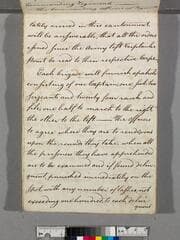 Commanding
tately arrived in this cantonment
will be answerable, that all the orders
issued since the army left
Point be read to their respective Corps.
Each brigade will furnish a patrole
consisting of one Captain, one sub, two
Sergeants and twenty four rank and
file, one half to march to the right
the other to the left — The officers
to agree where they are to rendezvous
upon the rounds they take, when all
the prisoners they have apprehended
are to be examined and if found delin
quent punished immediately on the
spot with any number of lashes not
exceeding one hundred to each delin
quent